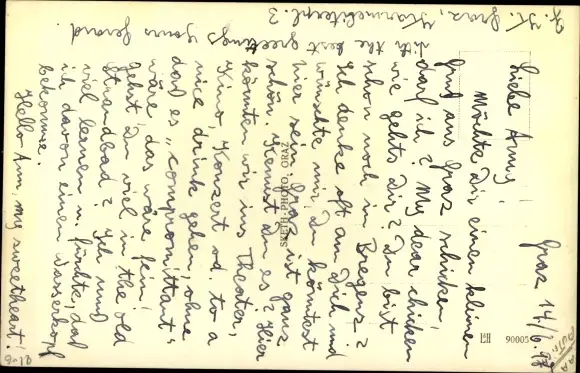 Graz 14./6. 
Liebe Anny!
Möchte Dir einen kleinen
Gruß aus Graz schicken,
darf ich? My dear chicken
wie gehts Dir? Du bist
schon noch in Bregenz?
Ich denke oft an Dich und
wünschte mir, Du könntest
hier sein. Graz ist ganz
schön. Kennst Du es? Hier
könnten wir ins Theater,
Kino, Konzert od. to a
nice drink gehen, ohne
daß es "compromittant"
wäre, das wäre fein!
Gehst Du viel in the old
Strandbad? Ich muß
viel lernen u. fürchte, daß
ich davon einen Wasserkopf
bekomme.
Hello Ann, my sweetheart!
With the best greetings yours Gerard
Graz, Karmeliterpl. 3
SKEIH-PHOTO GRAZ
90005